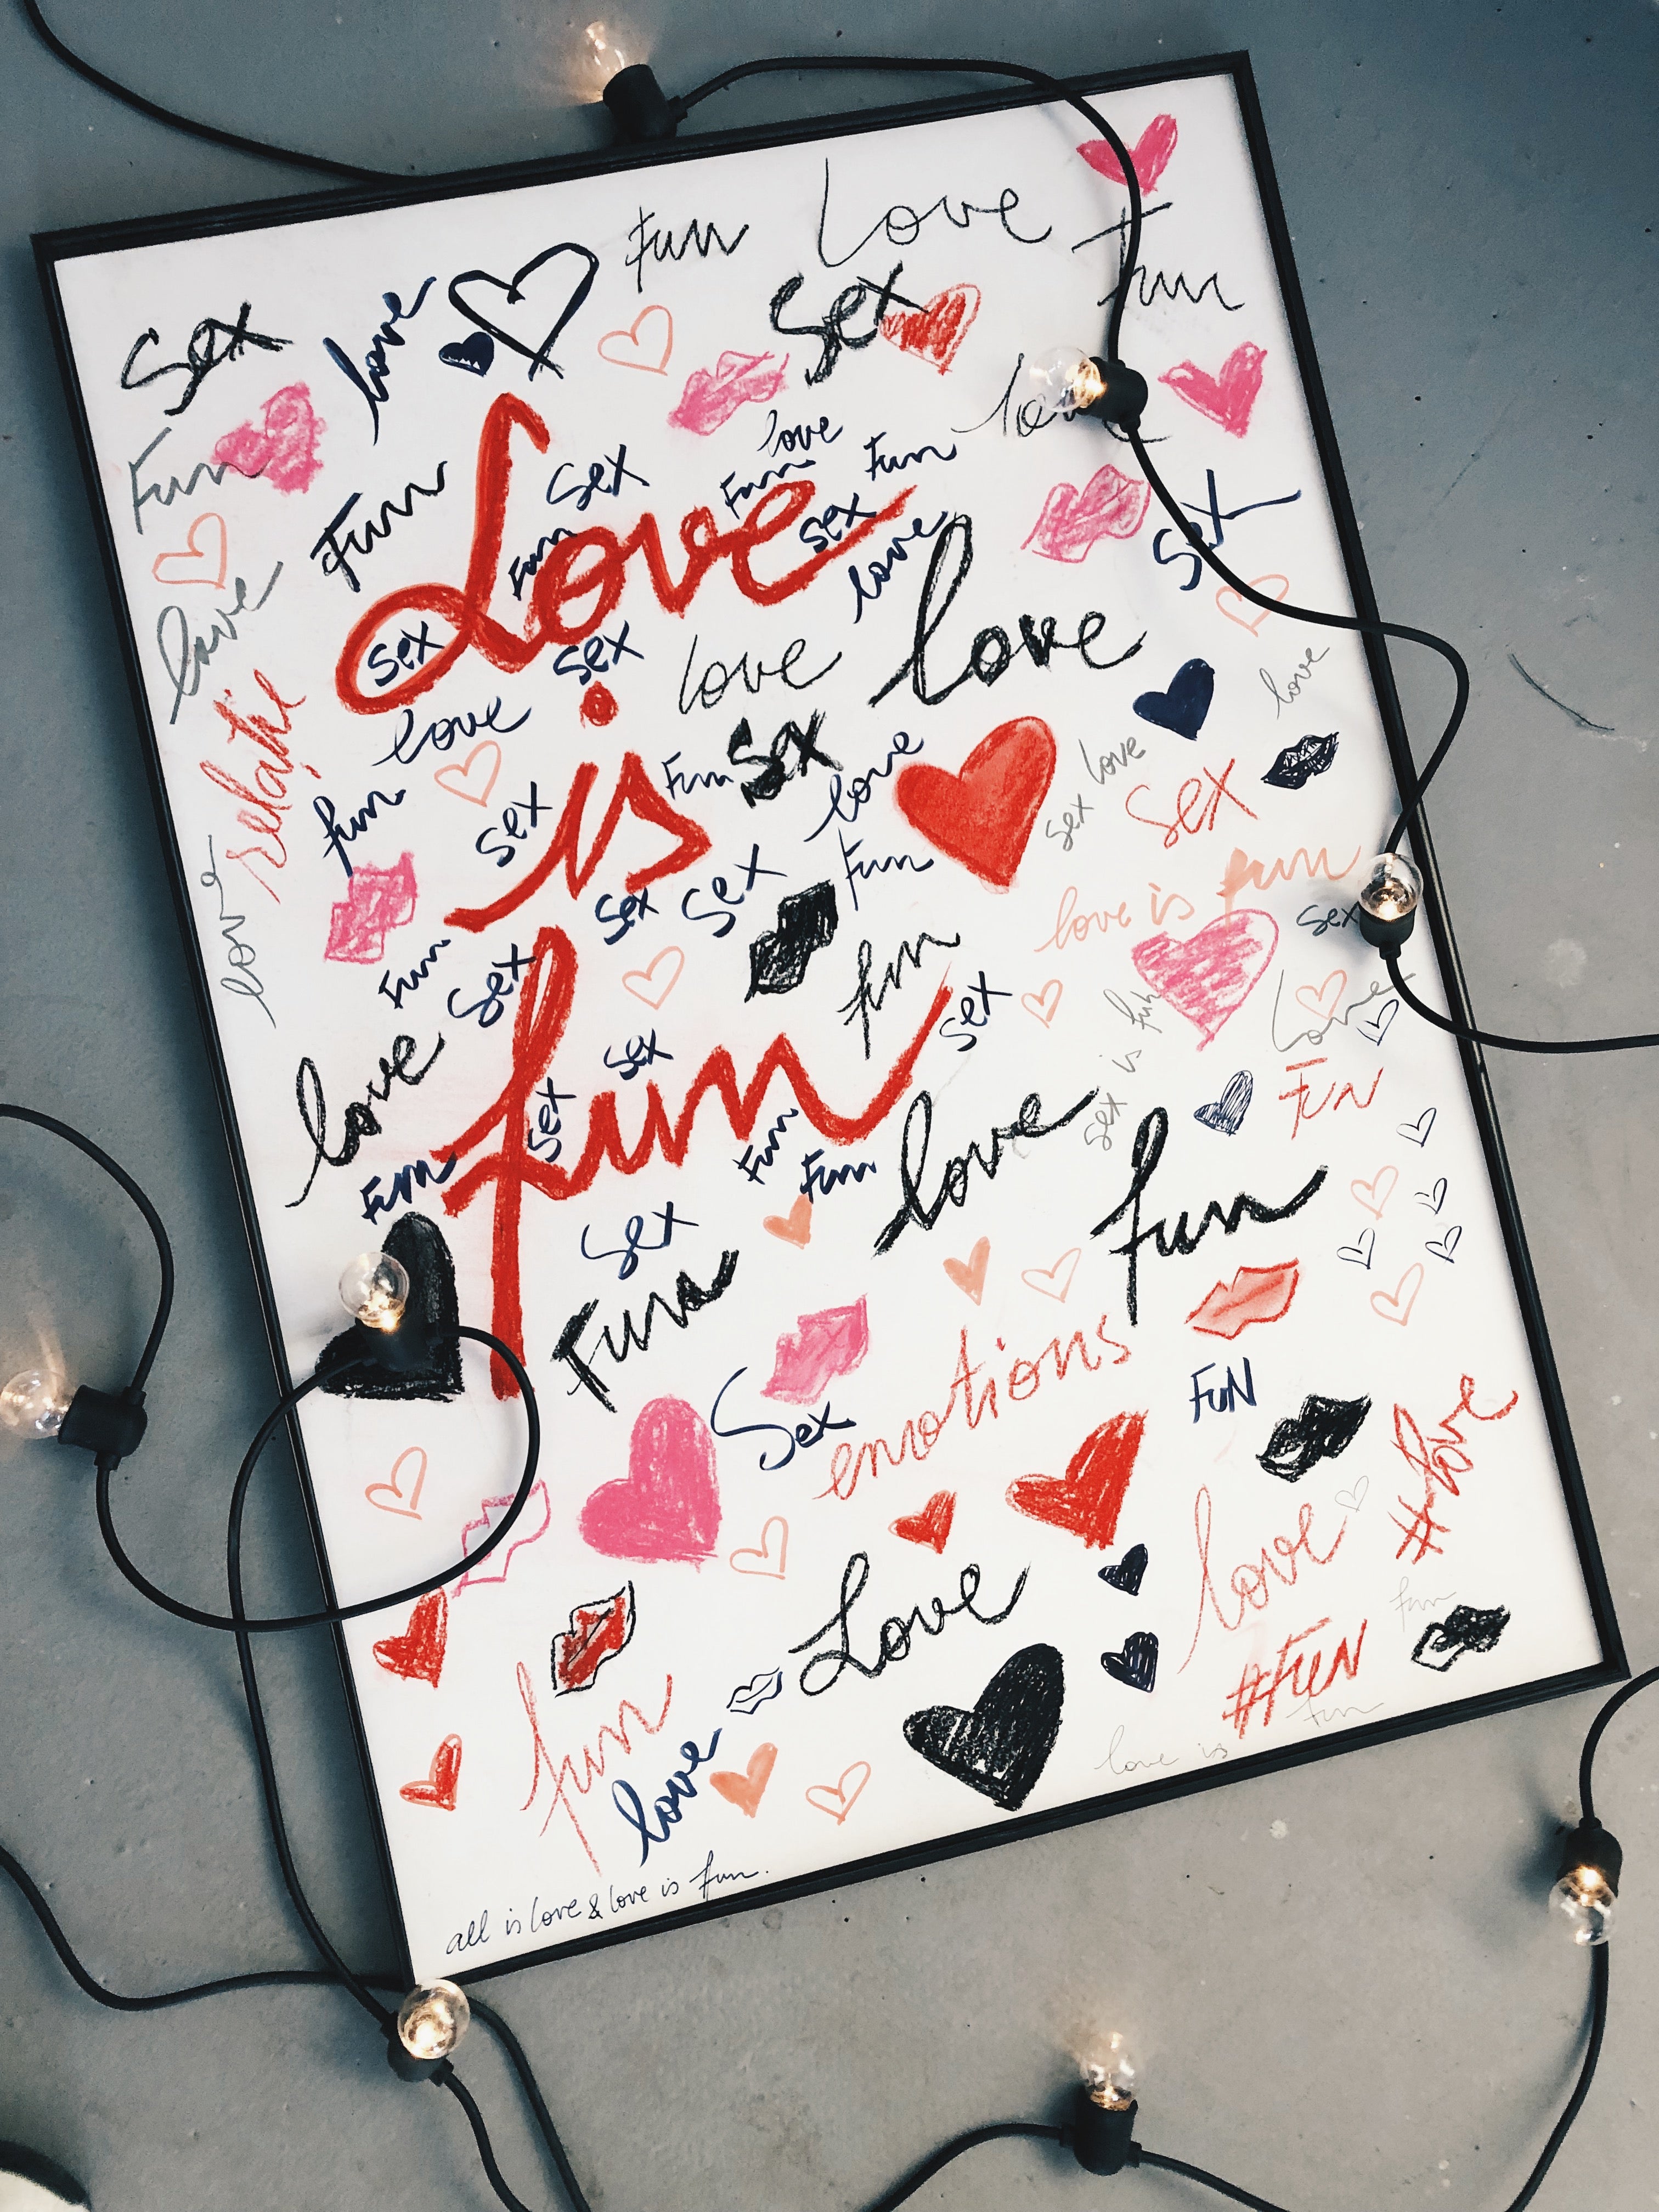 Fun Love
Fun
Sex love Sex
love
Fun Fun Sex love
Fun Fun
Sex
Love
Fun sex love
love
Sex sex love love
love
relatie
love
is
Fun Sex love
sex love
Sex
fun Sex
Fun
Sex Sex
love is fun
sex
love
Fun Sex fun
Sex
love
fun
sex is fun
FUN
love Sex
Sex
Fun Fun Fun
love
fun
Sex
Fun
emotions
Sex
FUN
#love
love
Love
fun
#FUN
fun
fun
love
love is
all is love & love is fun.